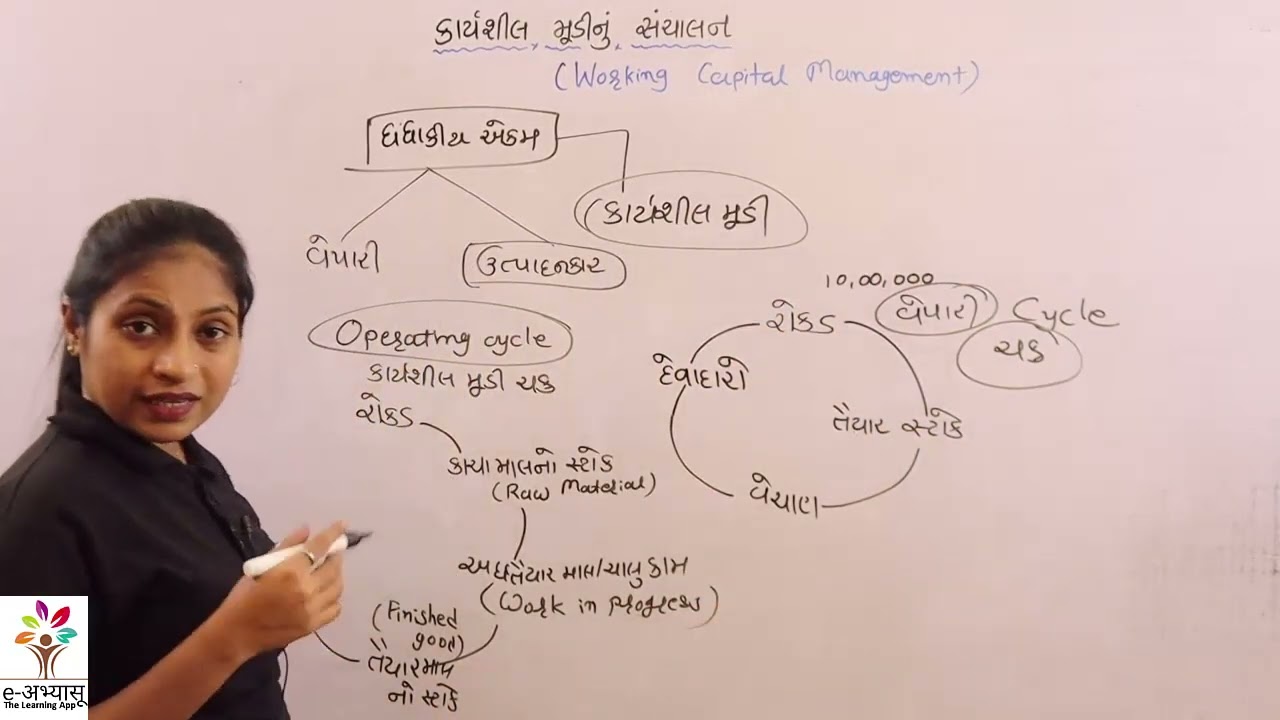 કાર્યશીલ મૂડીનું સંચાલન
(Working Capital Management)
ધંધાકીય એકમ
કાર્યશીલ મૂડી
વેપારી
ઉત્પાદનકાર
Operating cycle
કાર્યશીલ મૂડી ચક્ર
રોકડ
કાચા માલનો સ્ટોક
(Raw Material)
અર્ધતૈયાર માલ/ચાલુ કામ
(Work in Progress)
(Finished
good)
તૈયારમાલ
નો સ્ટોક
10,00,000
રોકડ
વેપારી Cycle
ચક્ર
દેવાદારો
તૈયાર સ્ટોક
વેચાણ
e-अभ्यासू
The Learning App